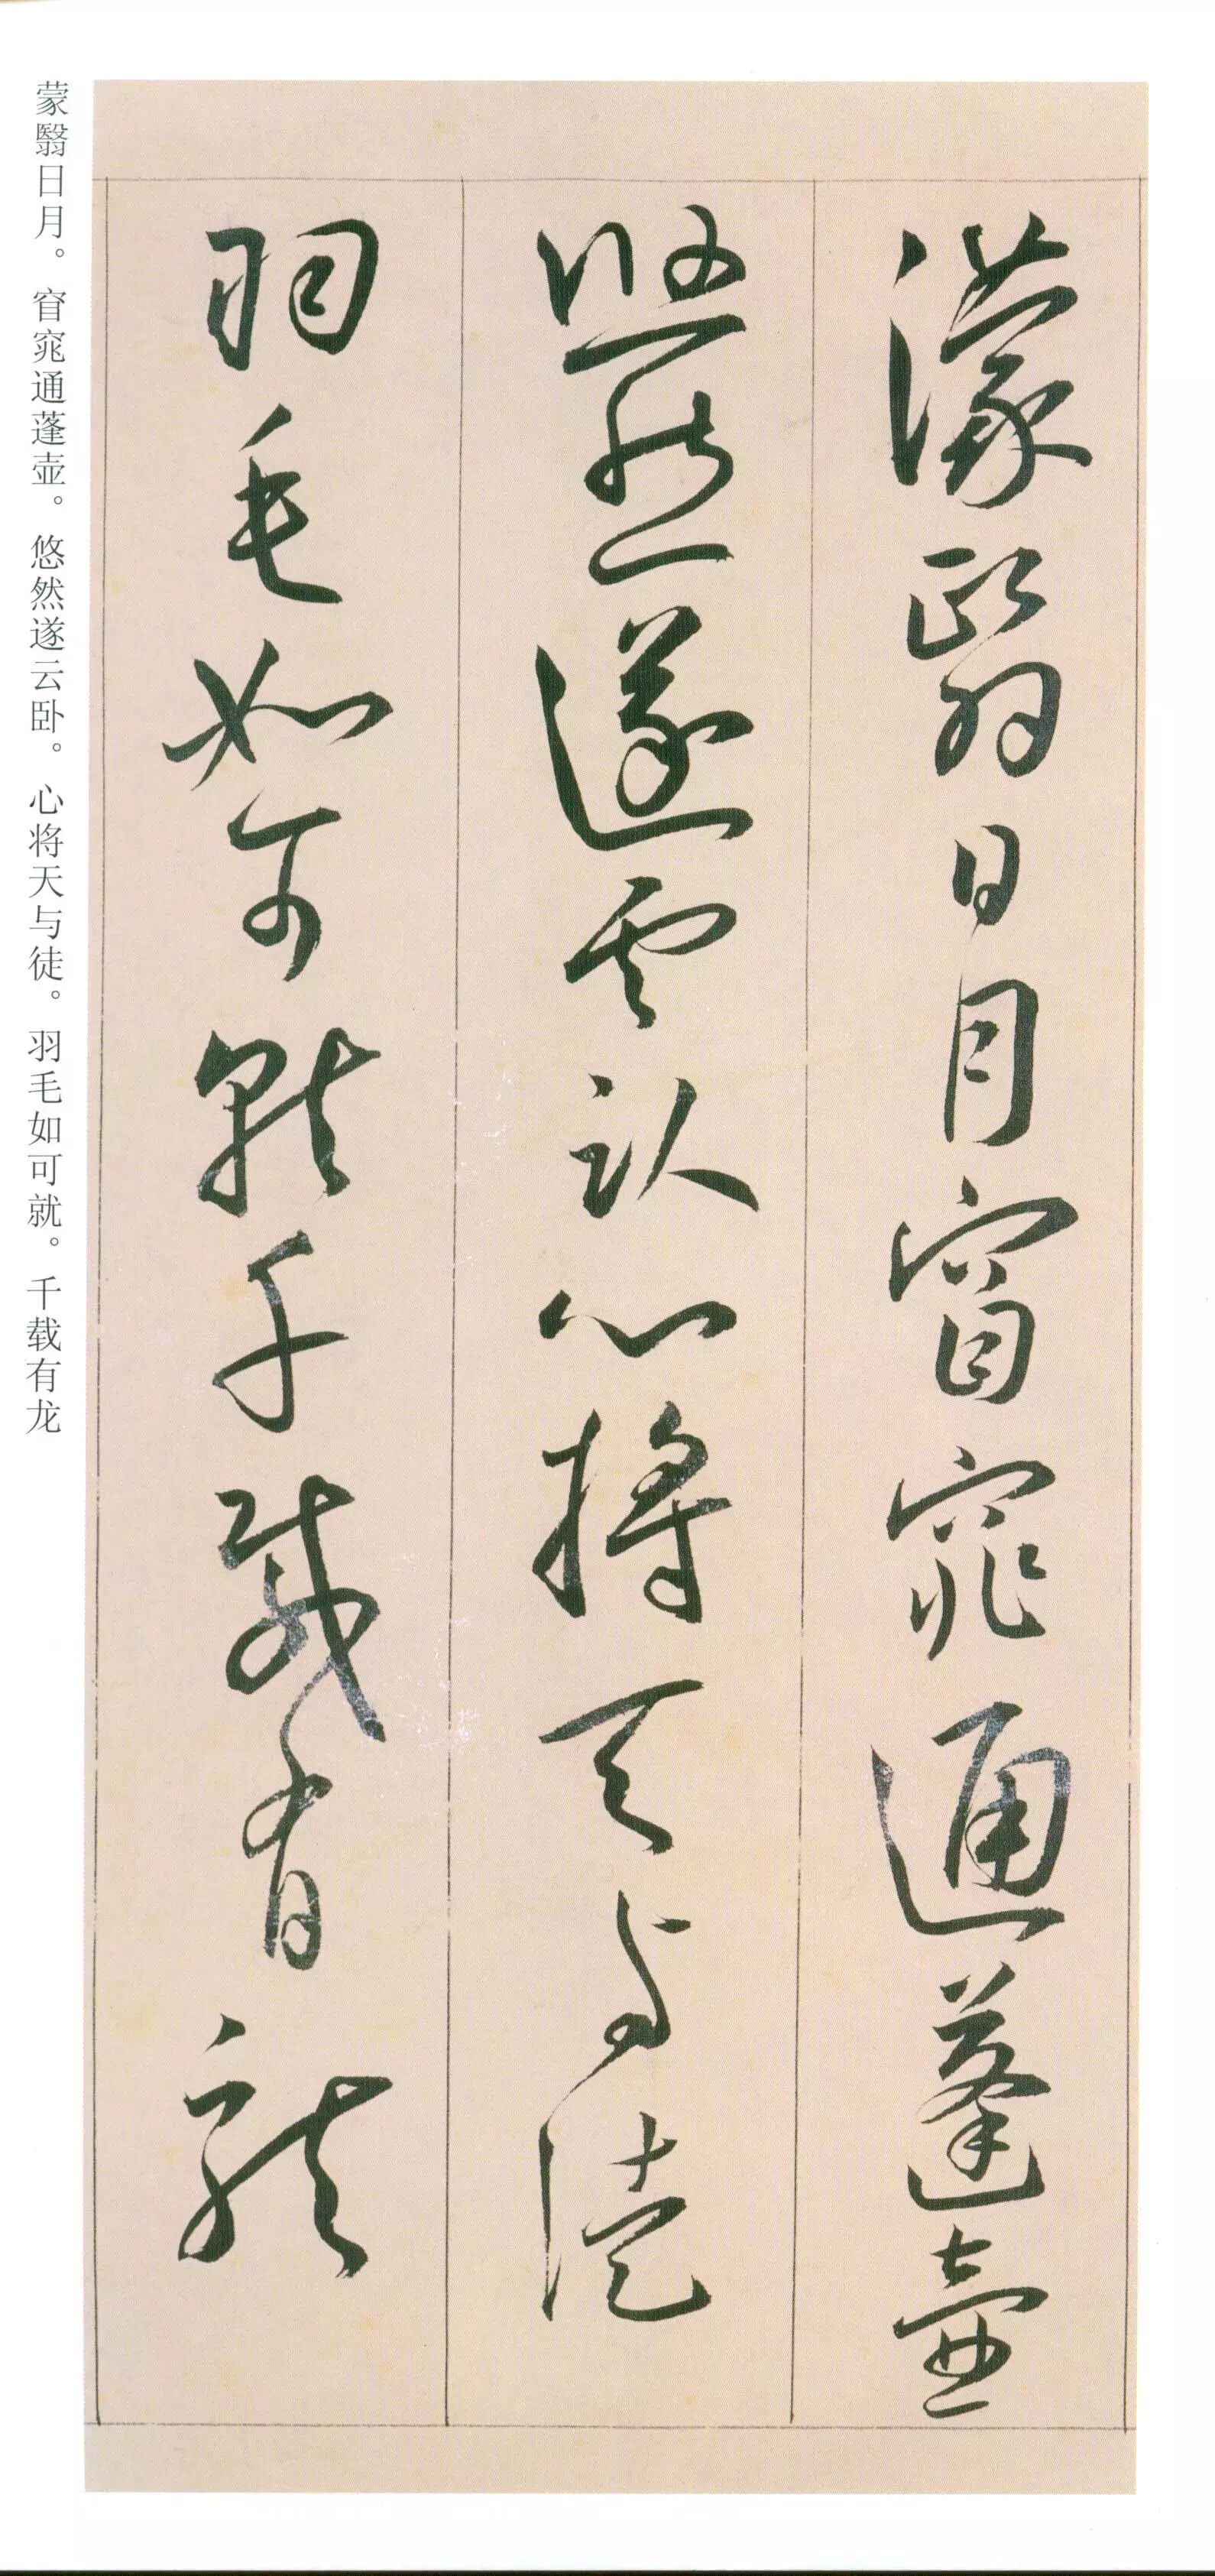 濛翳日月窅窕通蓬壺
悠然遂雲臥心將天与徒
羽毛如可就千載有龍
蒙翳日月。窅窕通蓬壶。悠然遂云卧。心将天与徒。羽毛如可就。千载有龙